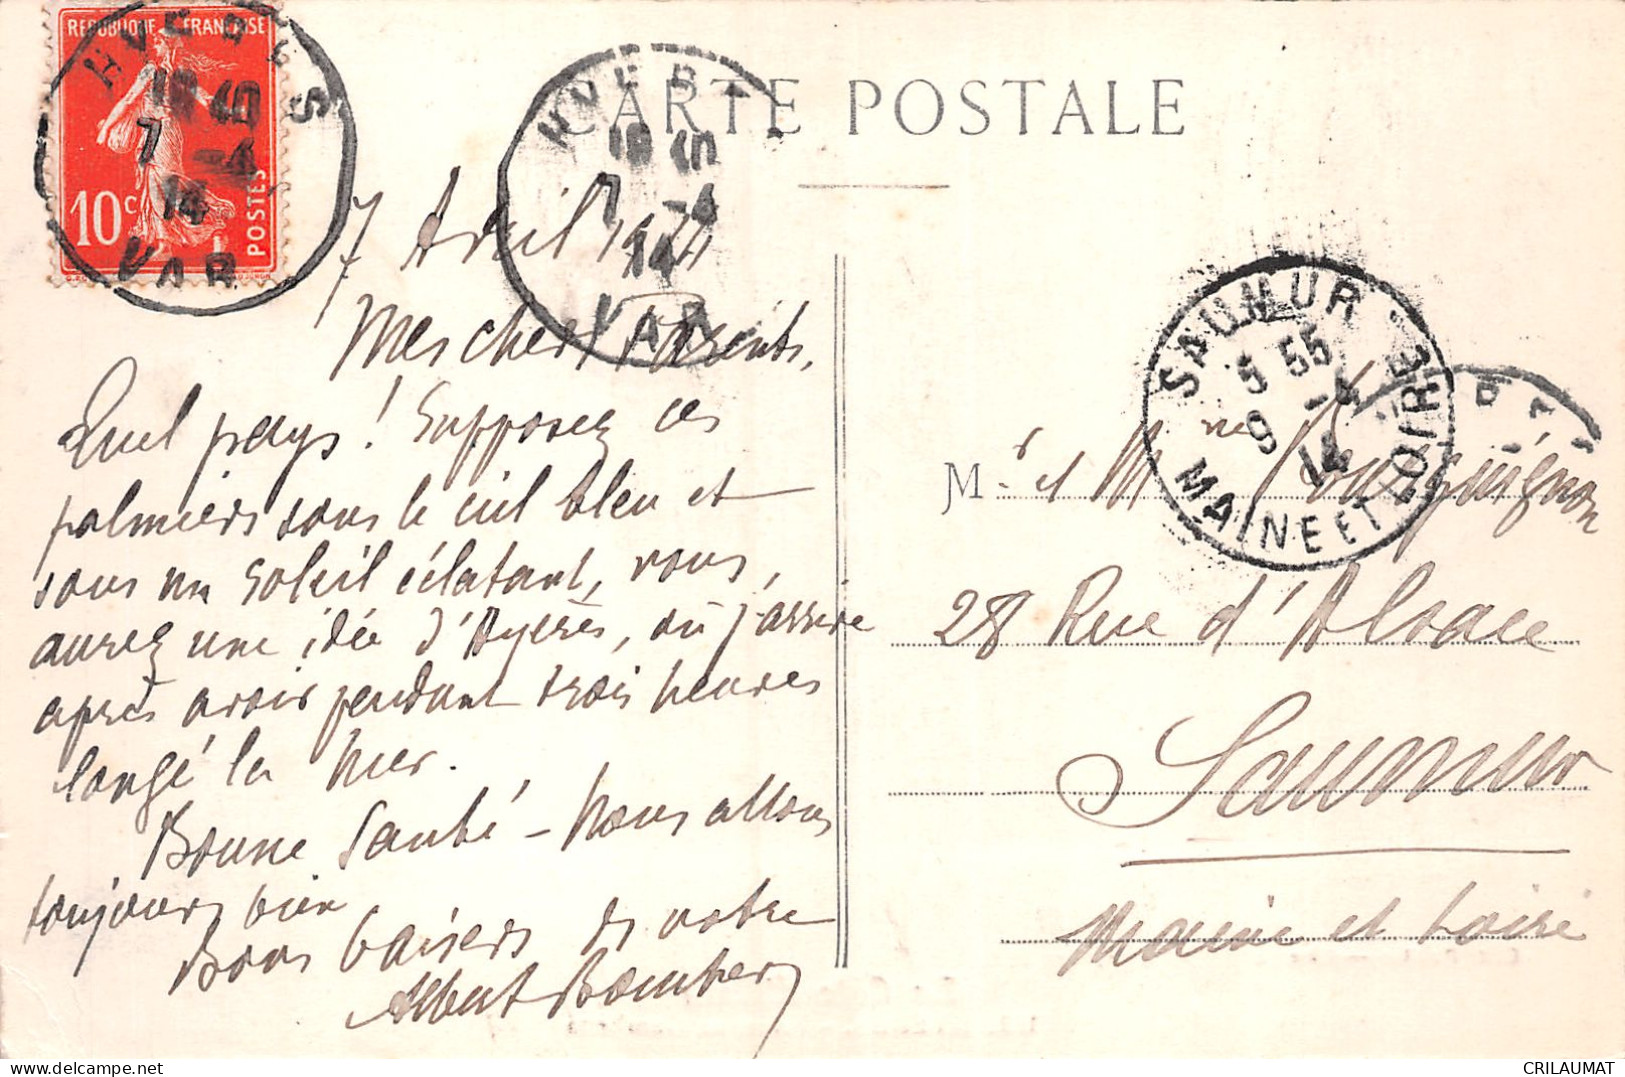 RÉPUBLIQUE FRANÇAISE
10c
POSTES
HYERES
18 45
7 -4
14
VAR
HYERES
18 45
7 -4
14
VAR
CARTE POSTALE
7 Avril 1914
Mes chers Parents,
Quel pays ! Supposez ces
palmiers sous le ciel bleu et
sous un soleil éclatant, vous
aurez une idée d'Hyères, où j'arrive
après avoir pendant trois heures
longé la mer.
Bonne Santé – Nous allons
toujours bien
Bons baisers de votre
Albert
SAUMUR
5 55
9 -4
14
MAINE ET LOIRE
Mr et Mme
28 Rue d'Alsace
Saumur
Maine et Loire
CRILAUMAT